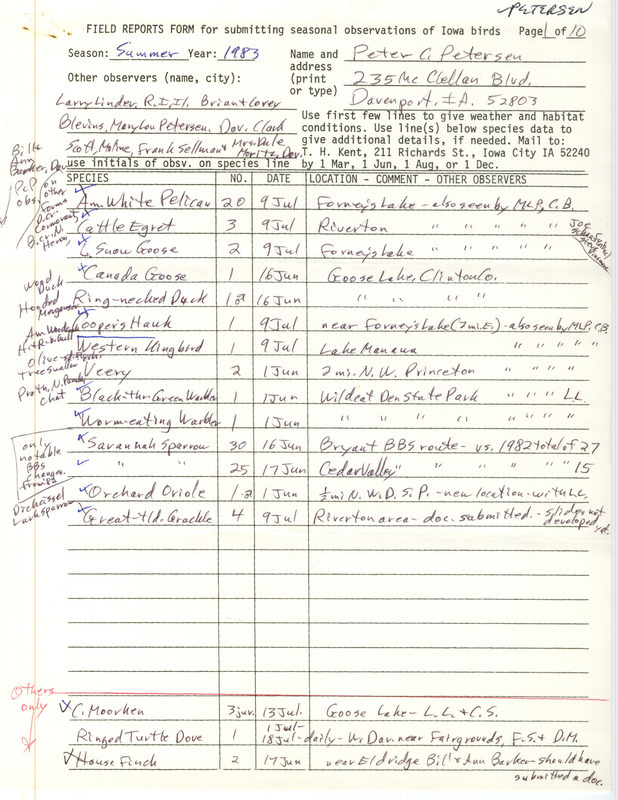 PETERSEN
FIELD REPORTS FORM for submitting seasonal observations of Iowa birds Page 1 of 10
Season: Summer Year: 1983
Name and address (print or type)
Peter C. Petersen
235 McClellan Blvd.
Davenport, IA. 52803
Other observers (name, city):
Larry Linder, R.I., Il. Brian + Corey
Blevins, Mary Lou Petersen, Dav. Clark
Scott, Moline, Frank Sellman + Mrs. Dale
Moritz, Dav.
Use first few lines to give weather and habitat
conditions. Use line(s) below species data to
give additional details, if needed. Mail to:
T. H. Kent, 211 Richards St., Iowa City IA 52240
use initials of obsv. on species line by 1 Mar, 1 Jun, 1 Aug, or 1 Dec.
Bill +
Ann
Barker, Dav
PCP on
obs. other
forms
D. cr.
Cormorant,
B. cr. N.
Heron
SPECIES NO. DATE LOCATION - COMMENT - OTHER OBSERVERS
Am. White Pelican 20 9 Jul Forney's Lake - also seen by MLP, C.B.
Cattle Egret 3 9 Jul Riverton " " " " Joe
L. Snow Goose 2 9 Jul Forney's Lake " " " "
Canada Goose 1 16 Jun Goose Lake, Clinton Co.
Ring-necked Duck 1♂ 16 Jun " " " "
Cooper's Hawk 1 9 Jul near Forney's Lake (2 mi. E.) - also seen by MLP, CB.
Western Kingbird 1 9 Jul Lake Manawa " " " "
Veery 2 1 Jun 2 mi. N.W. Princeton " " " "
Black-thr. Green Warbler 1 1 Jun Wildcat Den State Park " " L.L.
Worm-eating Warbler 1 1 Jun " " " " " " "
Savannah Sparrow 30 16 Jun Bryant BBS route - vs. 1982 total of 27
" " 25 17 Jun Cedar Valley " " " " " 15
Orchard Oriole 1♂ 1 Jun ½ mi N. W. D. S. P. - new location - with L.L.
Great-tld. Grackle 4 9 Jul Riverton area - doc. submitted. - slides not
developed
yet.
Wood
Duck
Hooded
Merganser
Am. Woodcock
Olive-s. Flyc.
Tree swallow
Proth., N. Parula
Chat
only
notable
BBS
changes
from 82
Dickcissel
Lark sparrow
Others
only
C. Moorhen 3 juv. 13 Jul. Goose Lake - L.L. + C.S.
Ringed Turtle Dove 1 1 Jul-
18 Jul - daily - W. Dav. near Fairgrounds, F.S. + D.M.
House Finch 2 17 Jun near Eldridge Bill + Ann Barker - should have
submitted a doc.